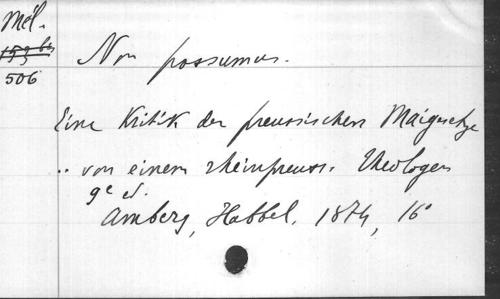 Mél.
506
Non possumus.
Eine Kritik der preussischen Maigesetze
.. von einem rheinpreuss. Theologen
2e éd.
Amberg, Habbel. 1874, 16°